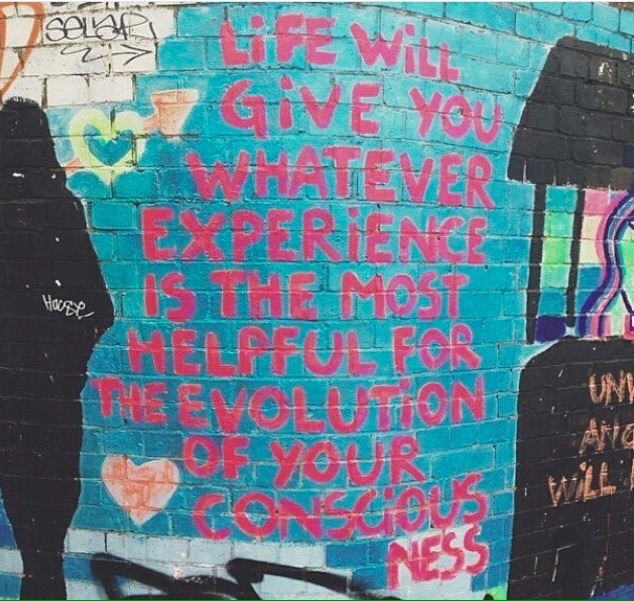 LiFE WiLL
GiVE YOU
WHATEVER
EXPERiENCE
iS THE MOST
HELPFUL FOR
THE EVOLUTiON
OF YOUR
CONSCiOUS
NESS
WiLL